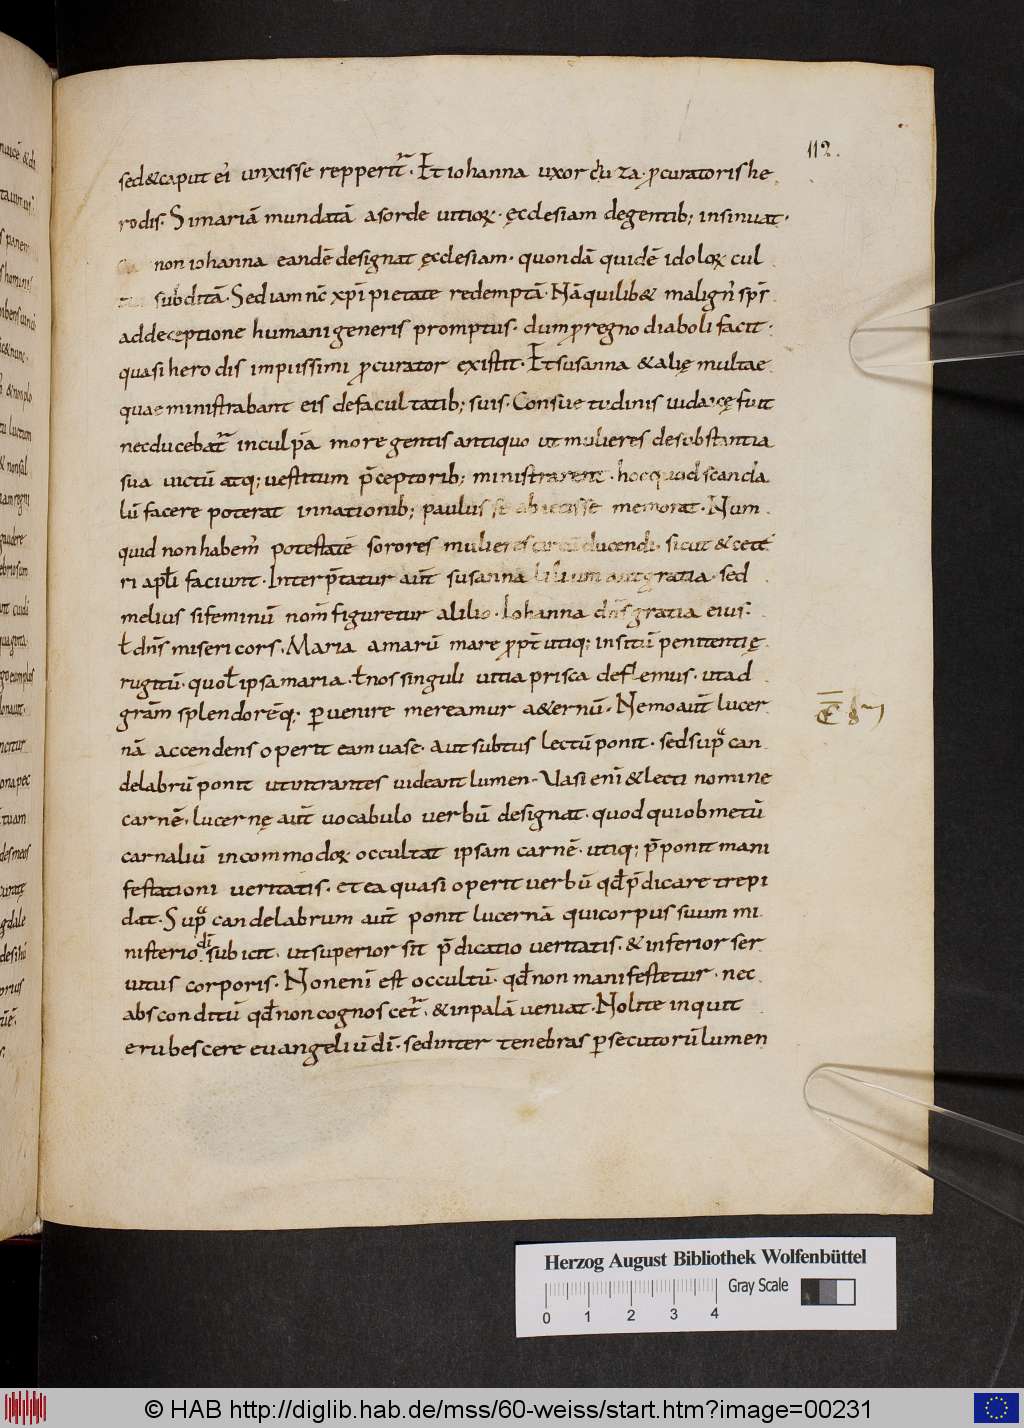 112.
sed & caput ei᾽ unxisse reppertᷓ. Et iohanna uxor chuza ꝓcuratoris he
rodis. Si mariā mundatā a sorde uitioꝝ. ęcclesiam degentib; insinuat.
non iohanna eandē designat ęcclesiam. quondā quidē idoloꝝ cul
subditā. Sed iam nc̄ xp̄i pietate redemptā. Nā quilib& malign᾽ sp̄s
ad deceptione humani generis promptus. dum ꝓ regno diaboli facit.
quasi herodis impiissimi ꝓcurator existit. Et susanna & alię multae
quae ministrabant eis de facultatib; suis. Consuetudinis iudaicę fuit
nec ducebatᷓ in culpā more gentis antiquo ut mulieres de substantia
sua uictū atq; uestitum p̄ceptorib; ministrarent. hoc quod scanda
lū facere poterat in nationib; paulus se abiecisse memorat. Num
quid non habem᾽ potestatē sorores mulieres circū ducendi. sicut & cete
ri apl̄i faciunt. Interp̄tatur aūt susanna lilium aut gratia. sed
melius si feminū nom̄ figuretur a lilio. Iohanna dn̄s gratia eius.
ł dn̄s misericors. Maria amarū mare ꝓpt̄ utiq; instū penitentię
rugitū. quo ł ipsa maria. ł nos singuli uitia prisca deflemus. ut ad
gr̄am splendorēq; ꝑuenire mereamur a&ernū. Nemo aūt lucer
nā accendens operit eam uase. aut subtus lectū ponit. sed supᷓ can
delabrū ponit ut intrantes uideant lumen. Uasi enī & lecti nomine
carnē. lucernę aūt uocabulo uerbū designat. quod qui ob metū
carnaliū incommodoꝝ occultat ipsam carnē. utiq; p̄ponit mani
festationi ueritatis. et ea quasi operit uerbū qd̄ p̄dicare trepi
dat. Supᷓ candelabrum aūt ponit lucernā qui corpus suum mi
nisterio dī subicit. ut superior sit p̄dicatio ueritatis. & inferior ser
uitus corporis. Non enī est occultū. qd̄ non manifestetur. nec
absconditū qd̄ non cognoscetᷓ. & in palā ueniat. Nolite inquit
erubescere euangeliū dī. sed inter tenebras ꝑsecutorū lumen
Herzog August Bibliothek Wolfenbüttel
Gray Scale
0 1 2 3 4
© HAB http://diglib.hab.de/mss/60-weiss/start.htm?image=00231